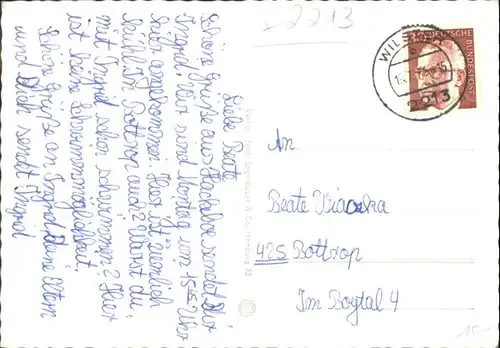 2213
Liebe Beate
Schöne Grüße aus Hackeboe sendet dir
Ingrid. Wir sind Montag um 15 Uhr
hier angekommen. Hier ist ziemlich
kühl. Ist Bottrop auch? Warst du
mit Ingrid schon schwimmen? Hier
ist keine Schwimmöglichkeit.
Schöne Grüße an Ingrid, deine Eltern
und dich sendet Ingrid
DEUTSCHE
BUNDESPOST
WILSTER
2213
An
Beate
425 Bottrop
Im Boytal 4
15,-